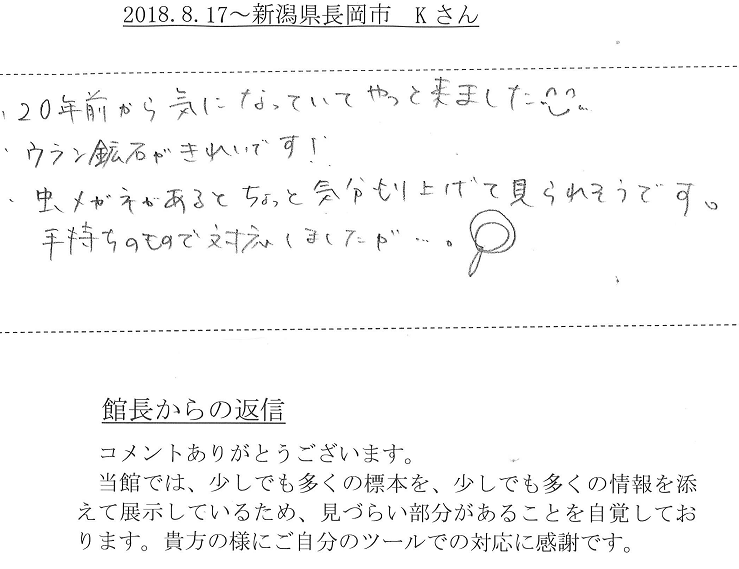 2018.8.17～新潟県長岡市　Kさん
・20年前から気になっていてやっと来ました
・ウラン鉱石がきれいです!
・虫メガネがあるとちょっと気分もり上げて見られそうです。
手持ちのもので対応しましたが…。
館長からの返信
コメントありがとうございます。
当館では、少しでも多くの標本を、少しでも多くの情報を添
えて展示しているため、見づらい部分があることを自覚してお
ります。貴方の様にご自分のツールでの対応に感謝です。